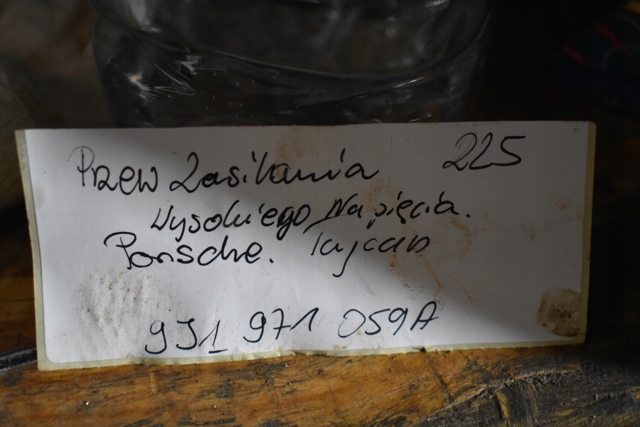 Przew Zasilania 225
Wysokiego Napięcia.
Porsche. Taycan
9J1 971 059A